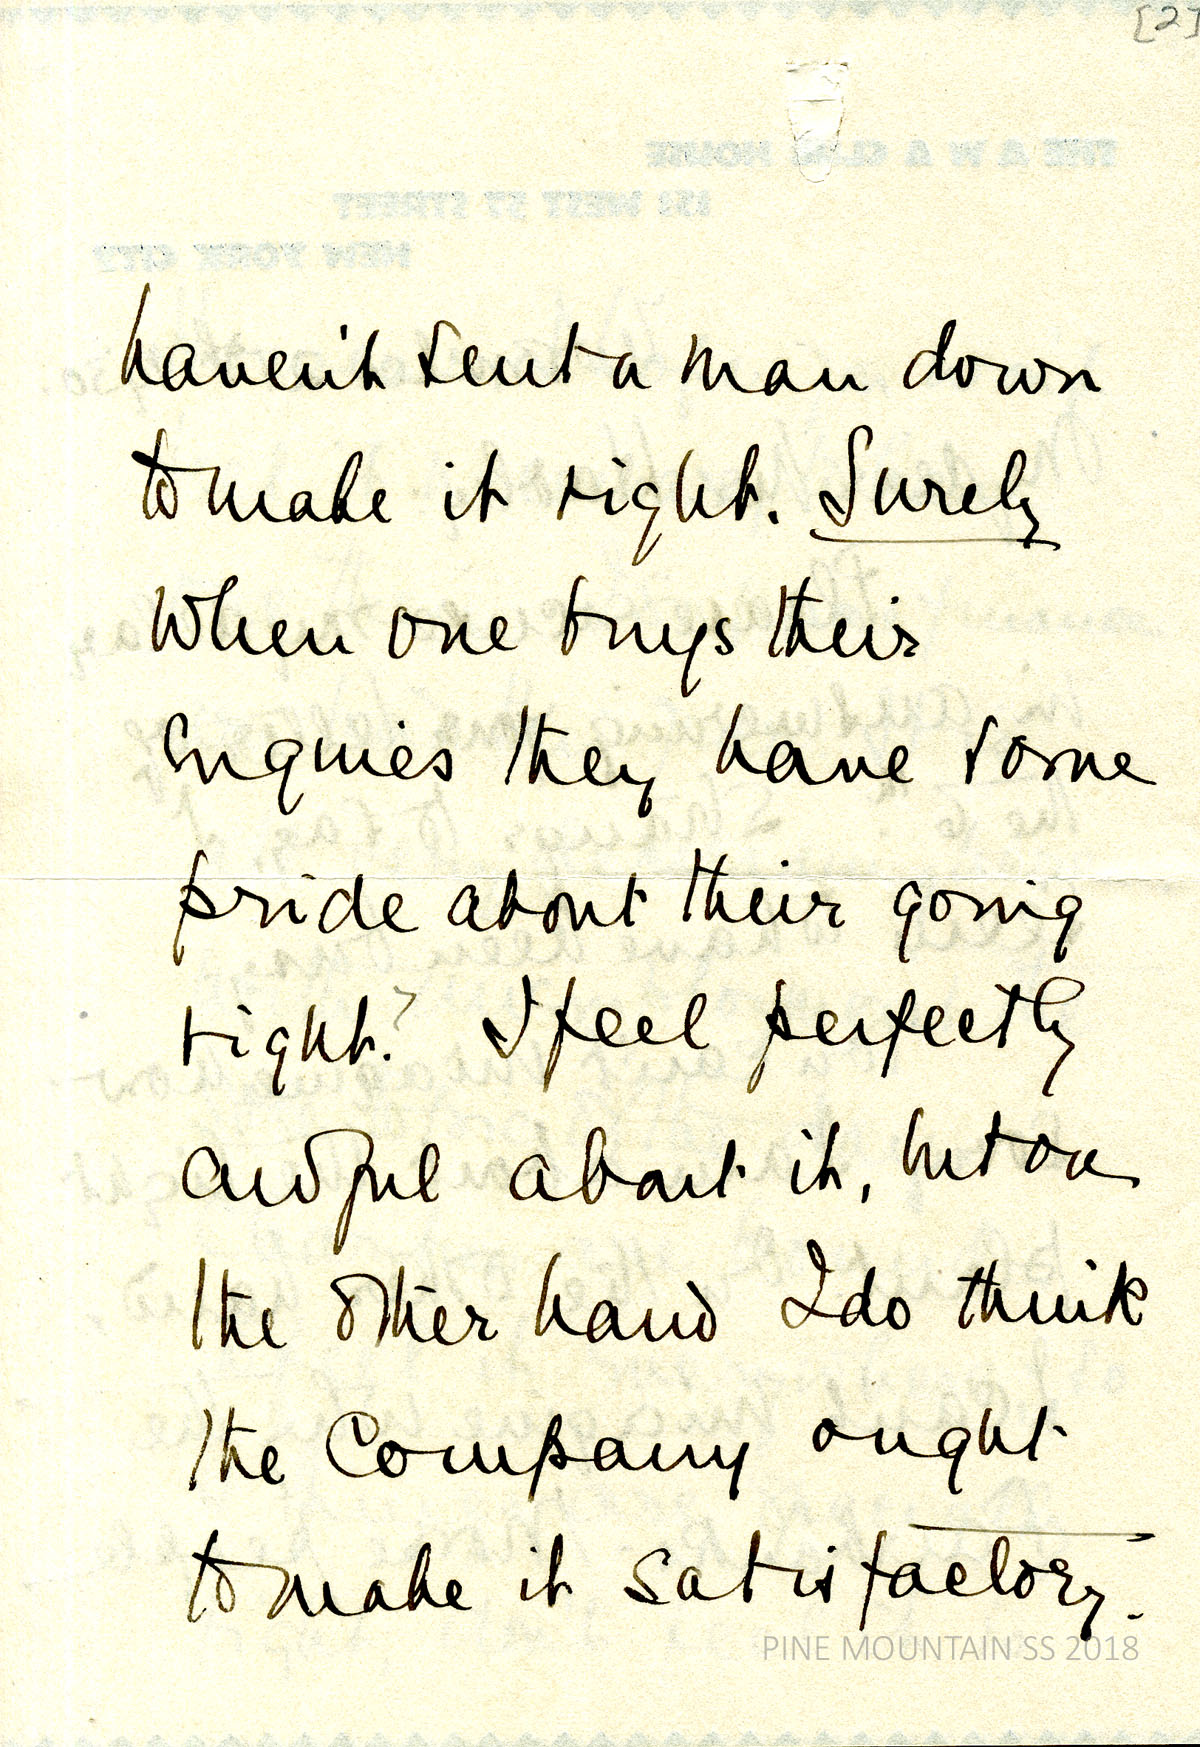 [2]
THE A W A CLUB HOUSE
WEST 57 STREET
NEW YORK CITY
haven't sent a man down
to make it right. Surely
when one buys their
engines they have some
pride about their going
right? I feel perfectly
awful about it, but on
the other hand I do think
the Company ought
to make it satisfactory.
PINE MOUNTAIN SS 2018